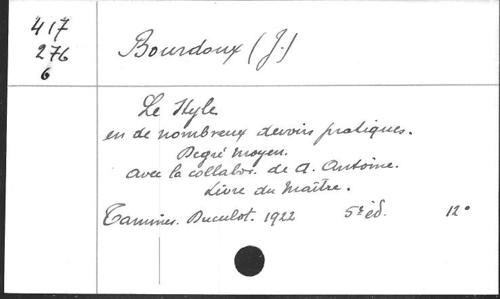 417
276
6
Bourdoux (J.)
Le Style
en de nombreux devoirs pratiques.
Degré moyen.
avec la collabor. de A. Antoine.
Livre du Maître.
Tamines. Duculot. 1922 5e éd. 12°